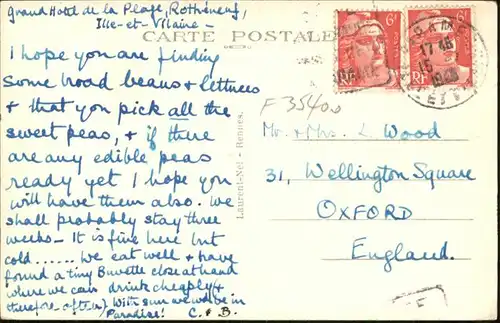 Grand Hotel de la Plage, Rothéneuf,
Ille-et-Vilaine -
CARTE POSTALE
I hope you are finding
some broad beans & lettuces
& that you pick all the
sweet peas, & if there
are any edible peas
ready yet I hope you
will have them also. We
shall probably stay three
weeks - It is fine here but
cold ...... We eat well & have
found a tiny Buvette close at hand
where we can drink cheaply (&
therefore often) With sun we wd be in
Paradise! C. & B.
Laurent-Nel - Rennes.
6F
6F
RF
17 45
15
F 35400
Mr. & Mrs. L. Wood
31, Wellington Square
OXFORD
England.